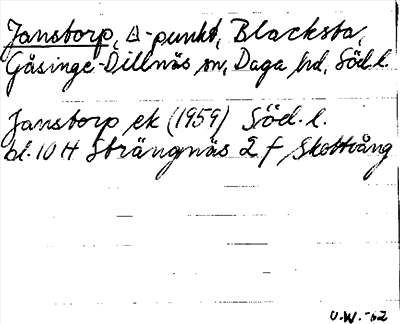 Janstorp, △-punkt, Blacksta,
Gåsinge-Dillnäs sn, Daga hd, Söd. l.
Janstorp ek (1959) Söd. l.
bl. 10 H Strängnäs 2 f Skottvång
U.W. -62